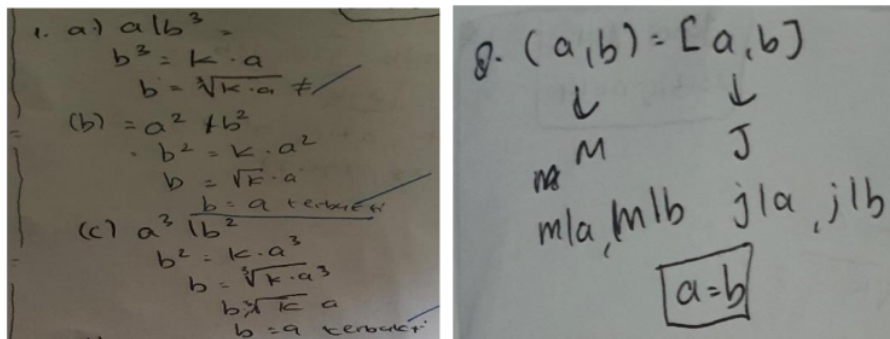 1. a.) a | b³
b³ = k . a
b = ∛k . a ≠
(b) = a² + b²
b² = k . a²
b = √k . a
b = a terbukti
(c) a³ | b²
b² = k . a³
b = ∛k . a³
b ∛k a
b = a terbukti
8. (a,b) = [a,b]
↓ ↓
M J
m|a, m|b j|a, j|b
a=b